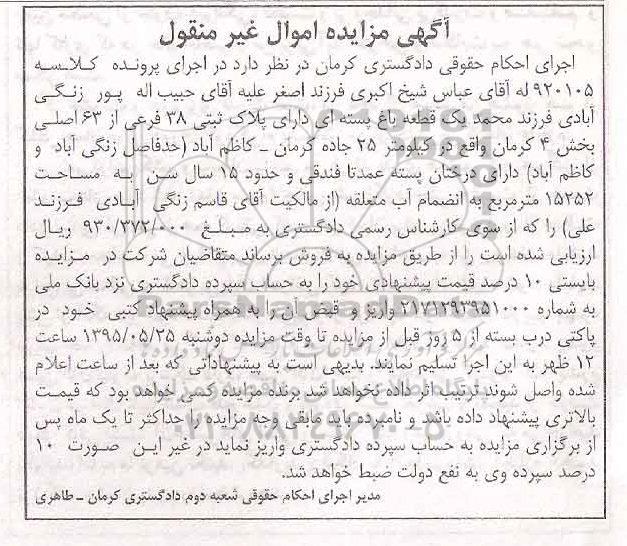 آگهی مزایده اموال غیر منقول
اجرای احکام حقوقی دادگستری کرمان در نظر دارد در اجرای پرونده کلاسه
۹۲۰۱۰۵ له آقای عباس شیخ اکبری فرزند اصغر علیه آقای حبیب اله پور زنگی
آبادی فرزند محمد یک قطعه باغ پسته ای دارای پلاک ثبتی ۳۸ فرعی از ۶۳ اصلی
بخش ۴ کرمان واقع در کیلومتر ۲۵ جاده کرمان ـ کاظم آباد (حدفاصل زنگی آباد و
کاظم آباد) دارای درختان پسته عمدتا فندقی و حدود ۱۵ سال سن به مساحت
۱۵۲۵۲ مترمربع به انضمام آب متعلقه (از مالکیت آقای قاسم زنگی آبادی فرزند
علی) را که از سوی کارشناس رسمی دادگستری به مبلغ ۹۳۰/۳۷۲/۰۰۰ ریال
ارزیابی شده است را از طریق مزایده به فروش برساند متقاضیان شرکت در مزایده
بایستی ۱۰ درصد قیمت پیشنهادی خود را به حساب سپرده دادگستری نزد بانک ملی
به شماره ۲۱۷۱۲۹۳۹۵۱۰۰۰ واریز و قبض آن را به همراه پیشنهاد کتبی خود در
پاکتی درب بسته از ۵ روز قبل از مزایده تا وقت مزایده دوشنبه ۱۳۹۵/۰۵/۲۵ ساعت
۱۲ ظهر به این اجرا تسلیم نمایند. بدیهی است به پیشنهاداتی که بعد از ساعت اعلام
شده واصل شوند ترتیب اثر داده نخواهد شد برنده مزایده کسی خواهد بود که قیمت
بالاتری پیشنهاد داده باشد و نامبرده باید مابقی وجه مزایده را حداکثر تا یک ماه پس
از برگزاری مزایده به حساب سپرده دادگستری واریز نماید در غیر این صورت ۱۰
درصد سپرده وی به نفع دولت ضبط خواهد شد.
مدیر اجرای احکام حقوقی شعبه دوم دادگستری کرمان ـ طاهری